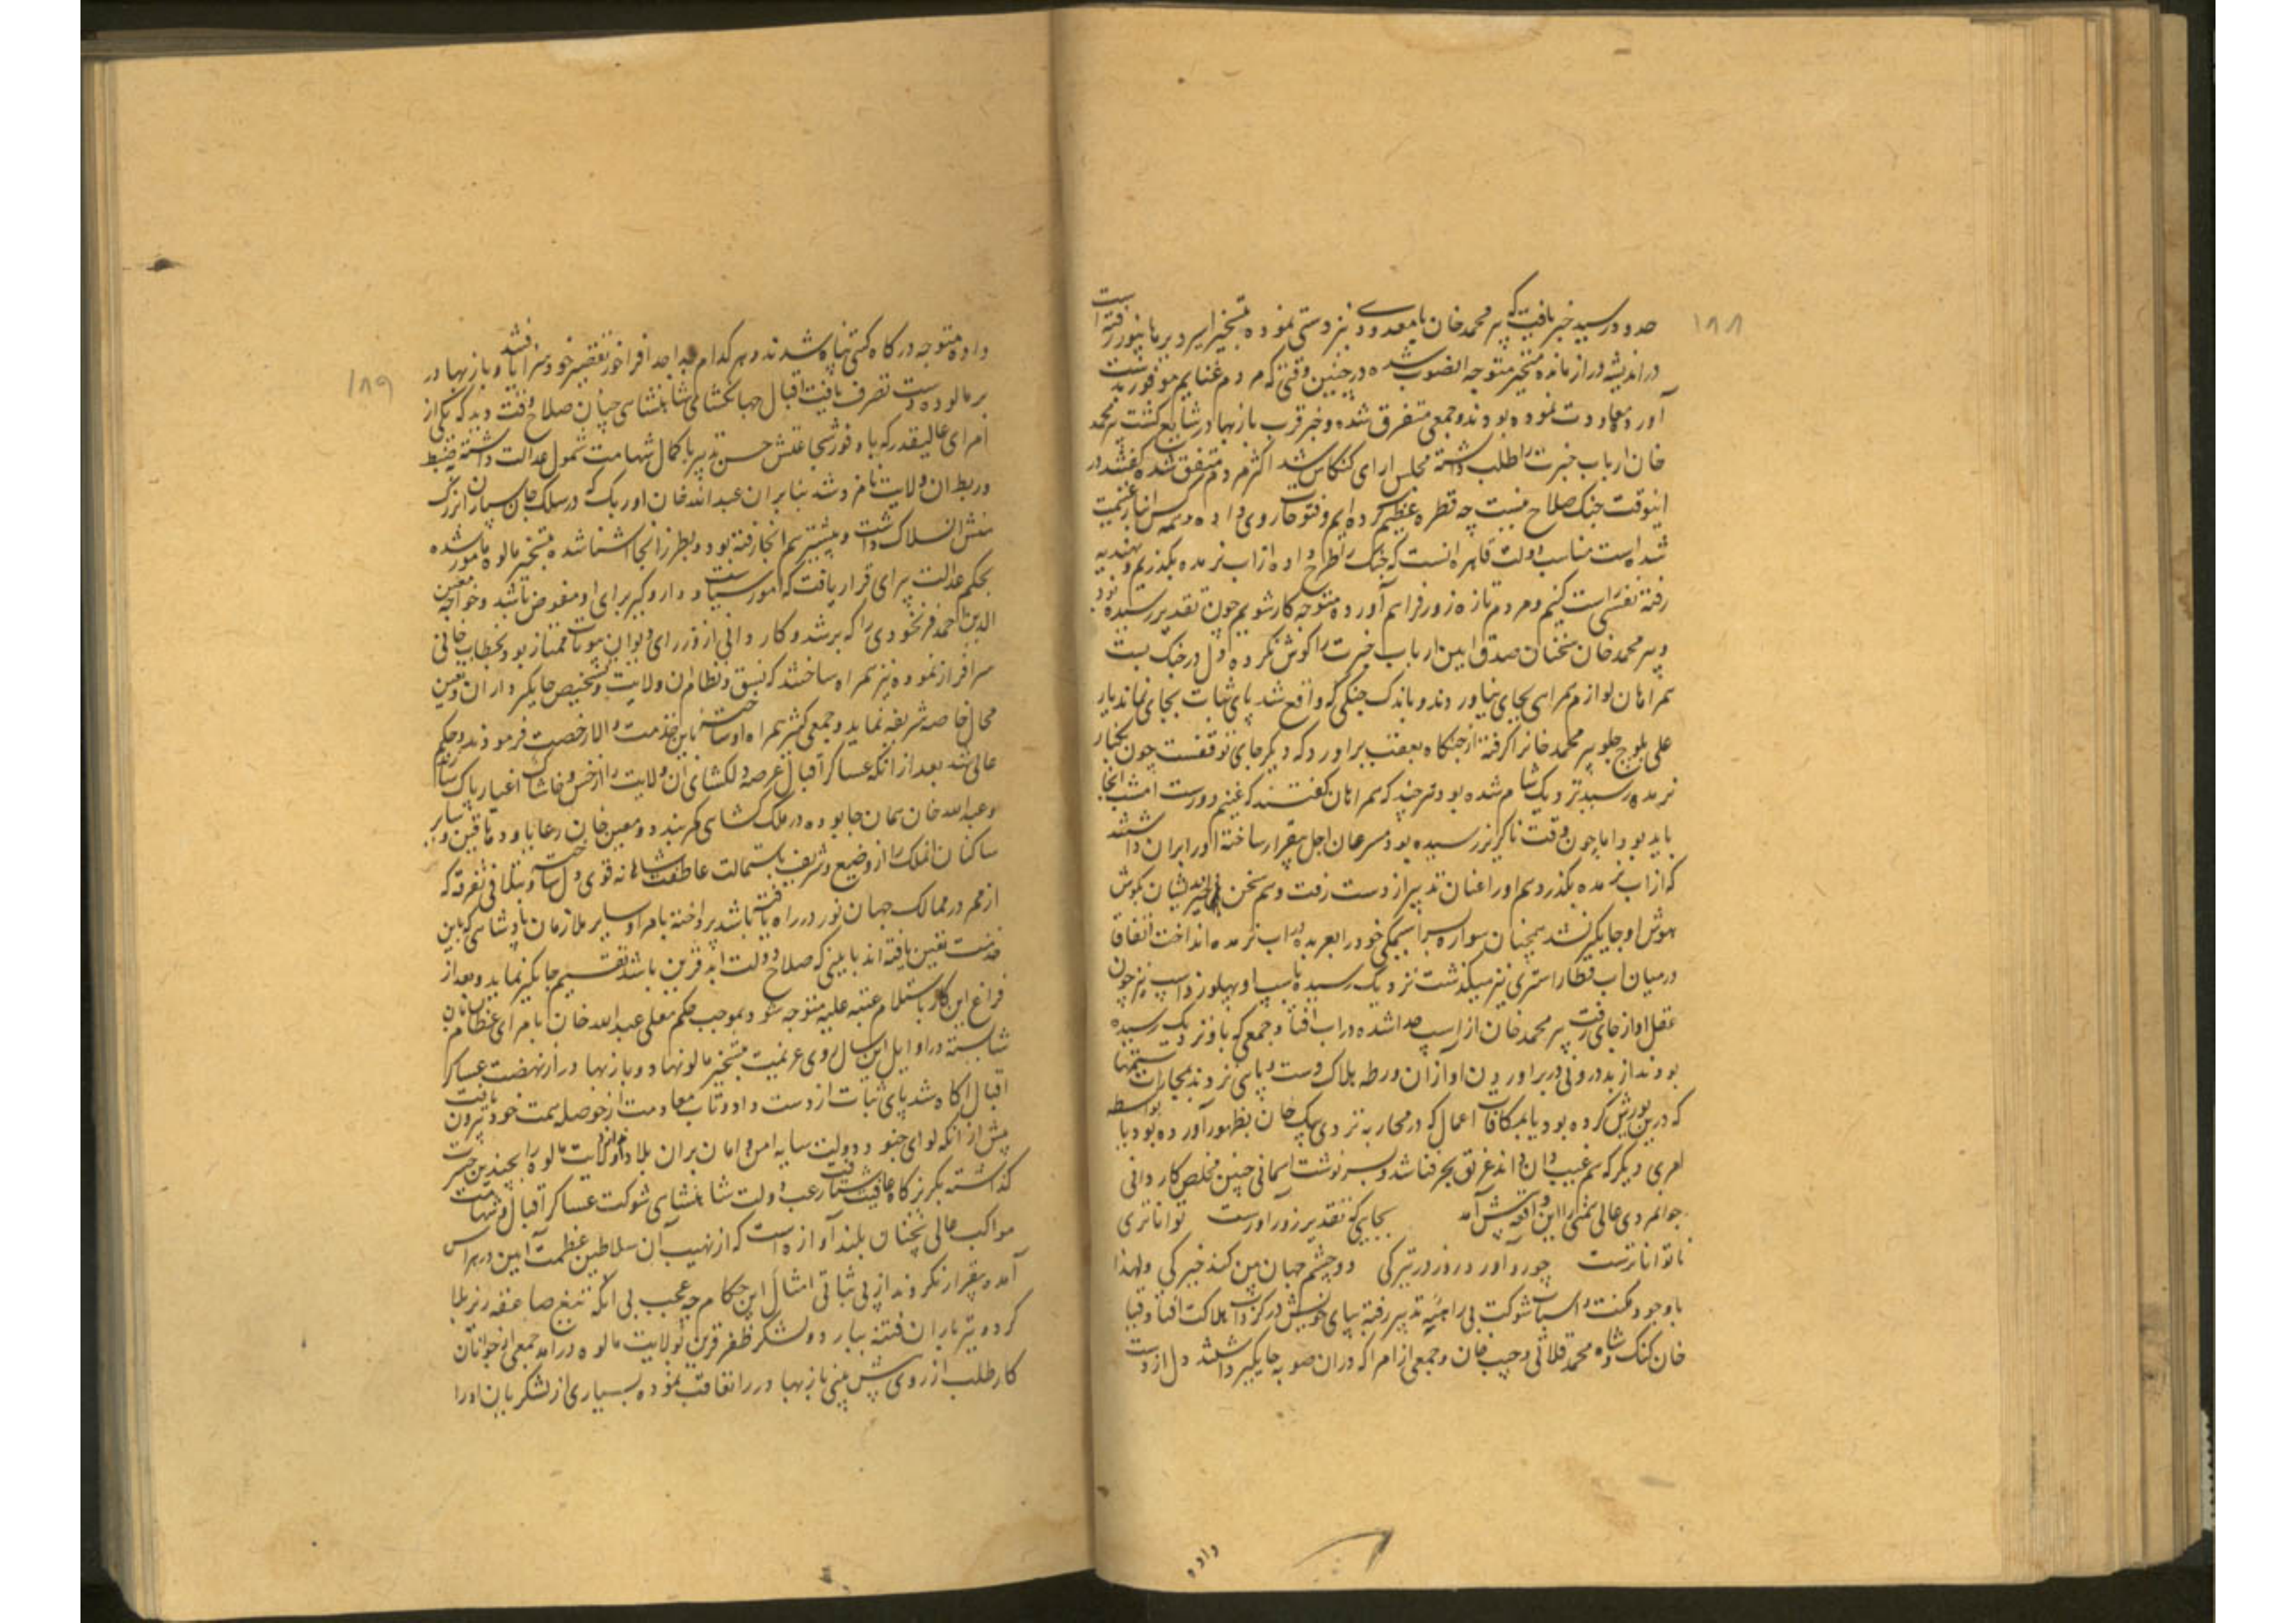 ۱۸۸
حدود رسید خبر یافت که پیر محمد خان با معدودی نیز دستی نموده بتسخیر اسیر و برهانپور رفته است
در اندیشه دراز مانده متحیر متوجه انصوب شده در چنین وقتی که مردم غنایم موفور بدست
آورده معاودت نموده بودند و جمعی متفرق شده و خبر قرب بازبهادر شایع کشت پیر محمد
خان ارباب خبرت را طلب داشته مجلس ارای کنکاش شد اکثر مردم متفق شده کفتند در
اینوقت جنک صلاح نیست چه قطره عظیم کرده ایم و فتوحات روی داده و همه کس انبار غنیمت
شده است مناسب دولت قاهره انست که جنک را طرح داده از اب نربده بگذریم و بهندیه
رفته نفسی راست کنیم و مردم تازه زور فراهم آورده متوجه کار شویم چون تقدیر رسیده بود
و پیر محمد خان سخنان صدق ایین ارباب خبرت را کوش نکرده دل در جنک بست
همراهان لوازم همراهی بجای نیاوردند و باندک جنکی که واقع شد پای ثبات بجای نماند یار
علی بلوچ جلو پیر محمد خانرا کرفته از جنکاه بعقب براورد که دیکر جای توقف نیست چون بکنار
نربده رسید نزدیک شام شده بود هر چند که همراهان کفتند که غنیم دورست امشب اینجا
باید بود اما چون وقت ناکزیر رسیده بود مسرعان اجل بیقرار ساخته او را بران داشتند
که از اب نربده بگذرد هم او را عنان تدبیر از دست رفت و هم سخن خیراندیشان بکوش
هوش او جایکیر نشد همچنان سواره سراسیمکی خود را بعربده در اب نربده انداخت اتفاقا
در میان اب قطار استری نیز میکذشت نزدیک رسیده باسپ او پهلو زد اسپ نیز چون
عقل او از جای رفت پیر محمد خان از اسپ جدا شده در اب افتاد و جمعی که باو نزدیک رسیده
بودند از بد درونی در براوردن او از ان ورطه هلاک دست و پای نزدند بمجازات ستمها
که درین یورش کرده بود یا بمکافات اعمال که در محاربه تردی بیک خان بظهور آورده بود یا بواسطه
امری دیکر که هم غیب دان داند غریق بحر فنا شد و بسرنوشت اسمانی چنین مخلص کاردانی
جوانمردی عالی همتی را این واقعه پیش آمد بجایی که تقدیر زوراورست تواناتری
ناتواناترست چو رو آورد روز در تیرکی دو چشم جهان بین کند خیرکی ولهذا
باوجود مکنت و اسباب شوکت بی راهه تدبیر رفته بپای خویش در کرداب هلاکت افتاد و قیا
خان کنک و شاه محمد قلاتی و حبیب خان و جمعی از امرا که دران صوبه جایکیر داشتند دل از دست
داده
۱۸۹
داده متوجه درکاه کیتی پناه شدند و هر کدام جدا جدا فراخور تقصیر خود سزا یافتند و بازبهادر
بر مالوه دست تصرف یافت اقبال جهانکشای شاهنشاهی چنان صلاح وقت دید که یکی از
امرای عالیقدر که باوفور شجاعتش حسن تدبیر باکمال شهامت شمول عدالت داشته بضبط
و ربط ان ولایت نامزد شد بنابران عبدالله خان اوزبک که در سلک جان سپاران بزرک
منش انسلاک داشت و پیشتر هم انجا رفته بود و بطرز انجا اشنا شده بتسخیر مالوه مامور شده
بحکم عدالت پیرای قرار یافت که امور سیاست و داروکیر برای او مفوض باشد و خواجه معین
الدین احمد فرنخودی را که برشد و کاردانی از وزرای دیوان بیوتات ممتاز بود بخطاب خانی
سرافراز نموده نیز همراه ساختند که نسق و نظام ان ولایت و تشخیص جایکیرداران و تعیین
محال خاصه شریفه نماید و جمعی کثیر همراه او ساخته باین خدمت والا رخصت فرمودند و حکم
عالی شد بعد از انکه عساکر اقبال عرصه دلکشای ان ولایت را از خس و خاشاک اغیار پاک سازند
و عبدالله خان همان جا بوده در ملک کشای کمر بندد و معین خان رعایا و دهاقین و سایر
ساکنان انملک را از وضیع و شریف باستمالت عاطفت شاهانه قوی دل ساخته و بتلافی تفرقه که
از ممر در ممالک جهان نورد راه یافته باشد پرداخته بامرا و سایر ملازمان پادشاهی که باین
خدمت تعین یافته اند باینی که صلاح دولت ابد قرین باشد تقسیم جایکیر نماید و بعد از
فراغ این کار باستلام عتبه علیه متوجه شود بموجب حکم معلی عبدالله خان بامرای عظام بسامان
شایسته در اوایل این سال روی عزیمت بتسخیر مالوه نهاد و بازبهادر از نهضت عساکر
اقبال اکاه شد پای ثبات از دست داد و تاب مقاومت از حوصله همت خود بیرون یافت
پیش از انکه لوای جنود دولت سایه امن و امان بران بلاد اندازد ولایت مالوه را بچندین حسرت
کذاشته بکریزکاه عافیت شتافت رعب دولت شاهنشاهی شوکت عساکر اقبال و شهامت
مواکب عالی نچنان بلند آوازه است که از نهیب آن سلاطین عظمت آیین در هراس
آمده بیقرار نکردند از بی ثباتی امثال این حکام چه عجب بی انکه تیغ صاعقه ریز بلا
کرد و تیر باران فتنه ببارد و لشکر ظفر قرین بولایت مالوه درآمد جمعی از جوانان
کارطلب از روی پیش بینی بازبهادر را تعاقب نموده بسیاری از لشکریان او را